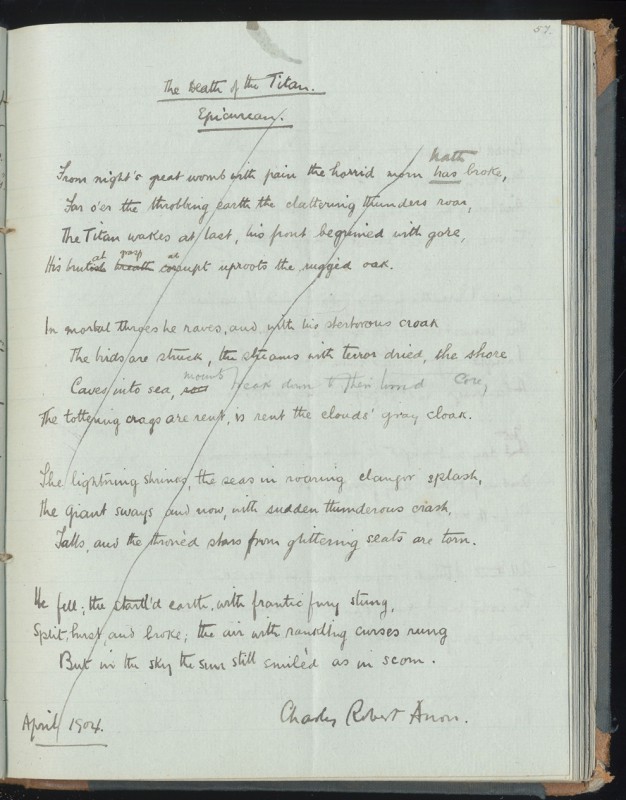 57.
The Death of the Titan.
Epicurean.
From night's great womb with pain the horrid morn has hath broke,
Far o'er the throbbing earth the clattering thunders roar,
The Titan wakes at last, his front begrimed with gore,
His brutish at breath gasp at uproots the rugged oak.
In mortal throes he raves, and with his stertorous croak
The birds are struck, the streams with terror dried, the shore
Caves into sea, mounts break down to their core,
The tottering crags are rent, is rent the clouds' gray cloak.
The lightning shrinks, the seas in roaring clangor splash,
The giant sways and now, with sudden thunderous crash,
Falls, and the thronèd stars from glittering seats are torn.
He fell; the startl'd earth, with frantic fury stung,
Split, burst, and broke; the air with rankling curses rung
But in the sky the sun still smiled as in scorn.
April 1904.
Charles Robert Anon.